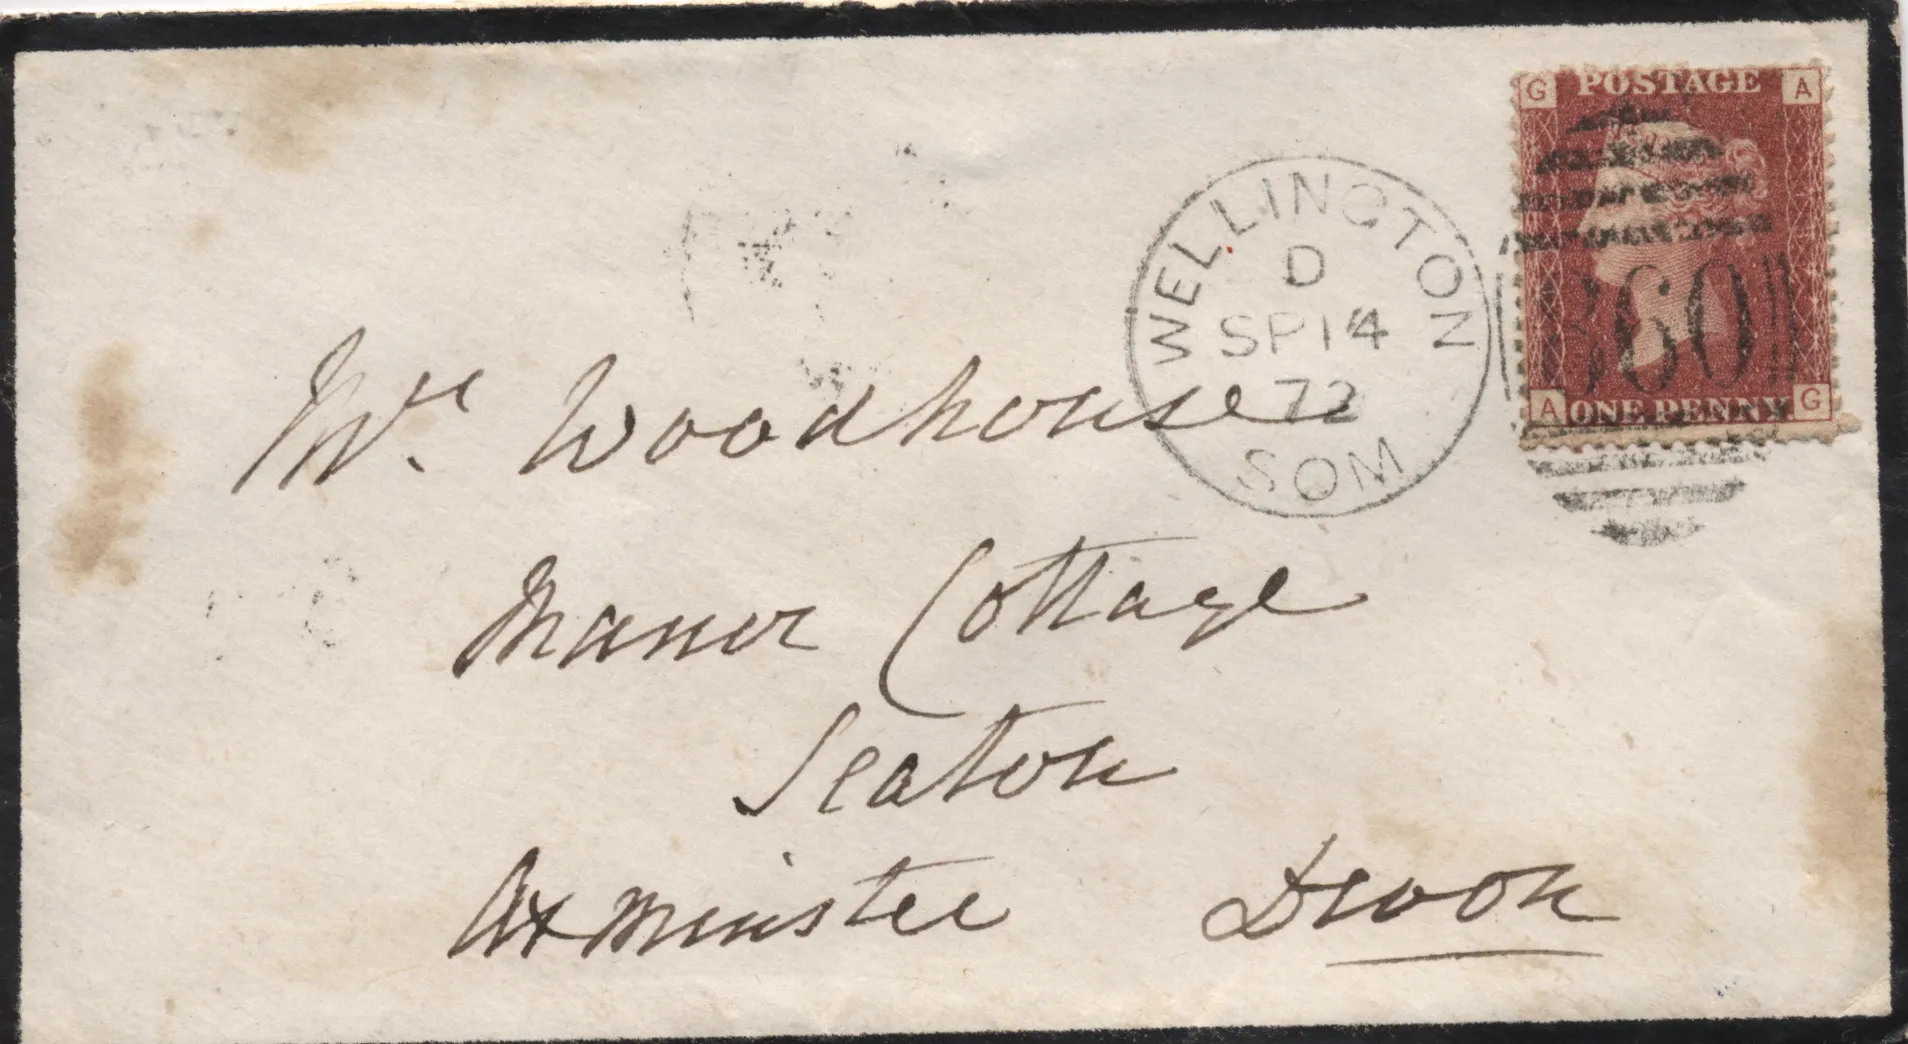 G POSTAGE A
WELLINGTON
D
SP 14
72
SOM
860
A ONE PENNY G
Mrs. Woodhouse
Manor Cottage
Seaton
Axminster Devon